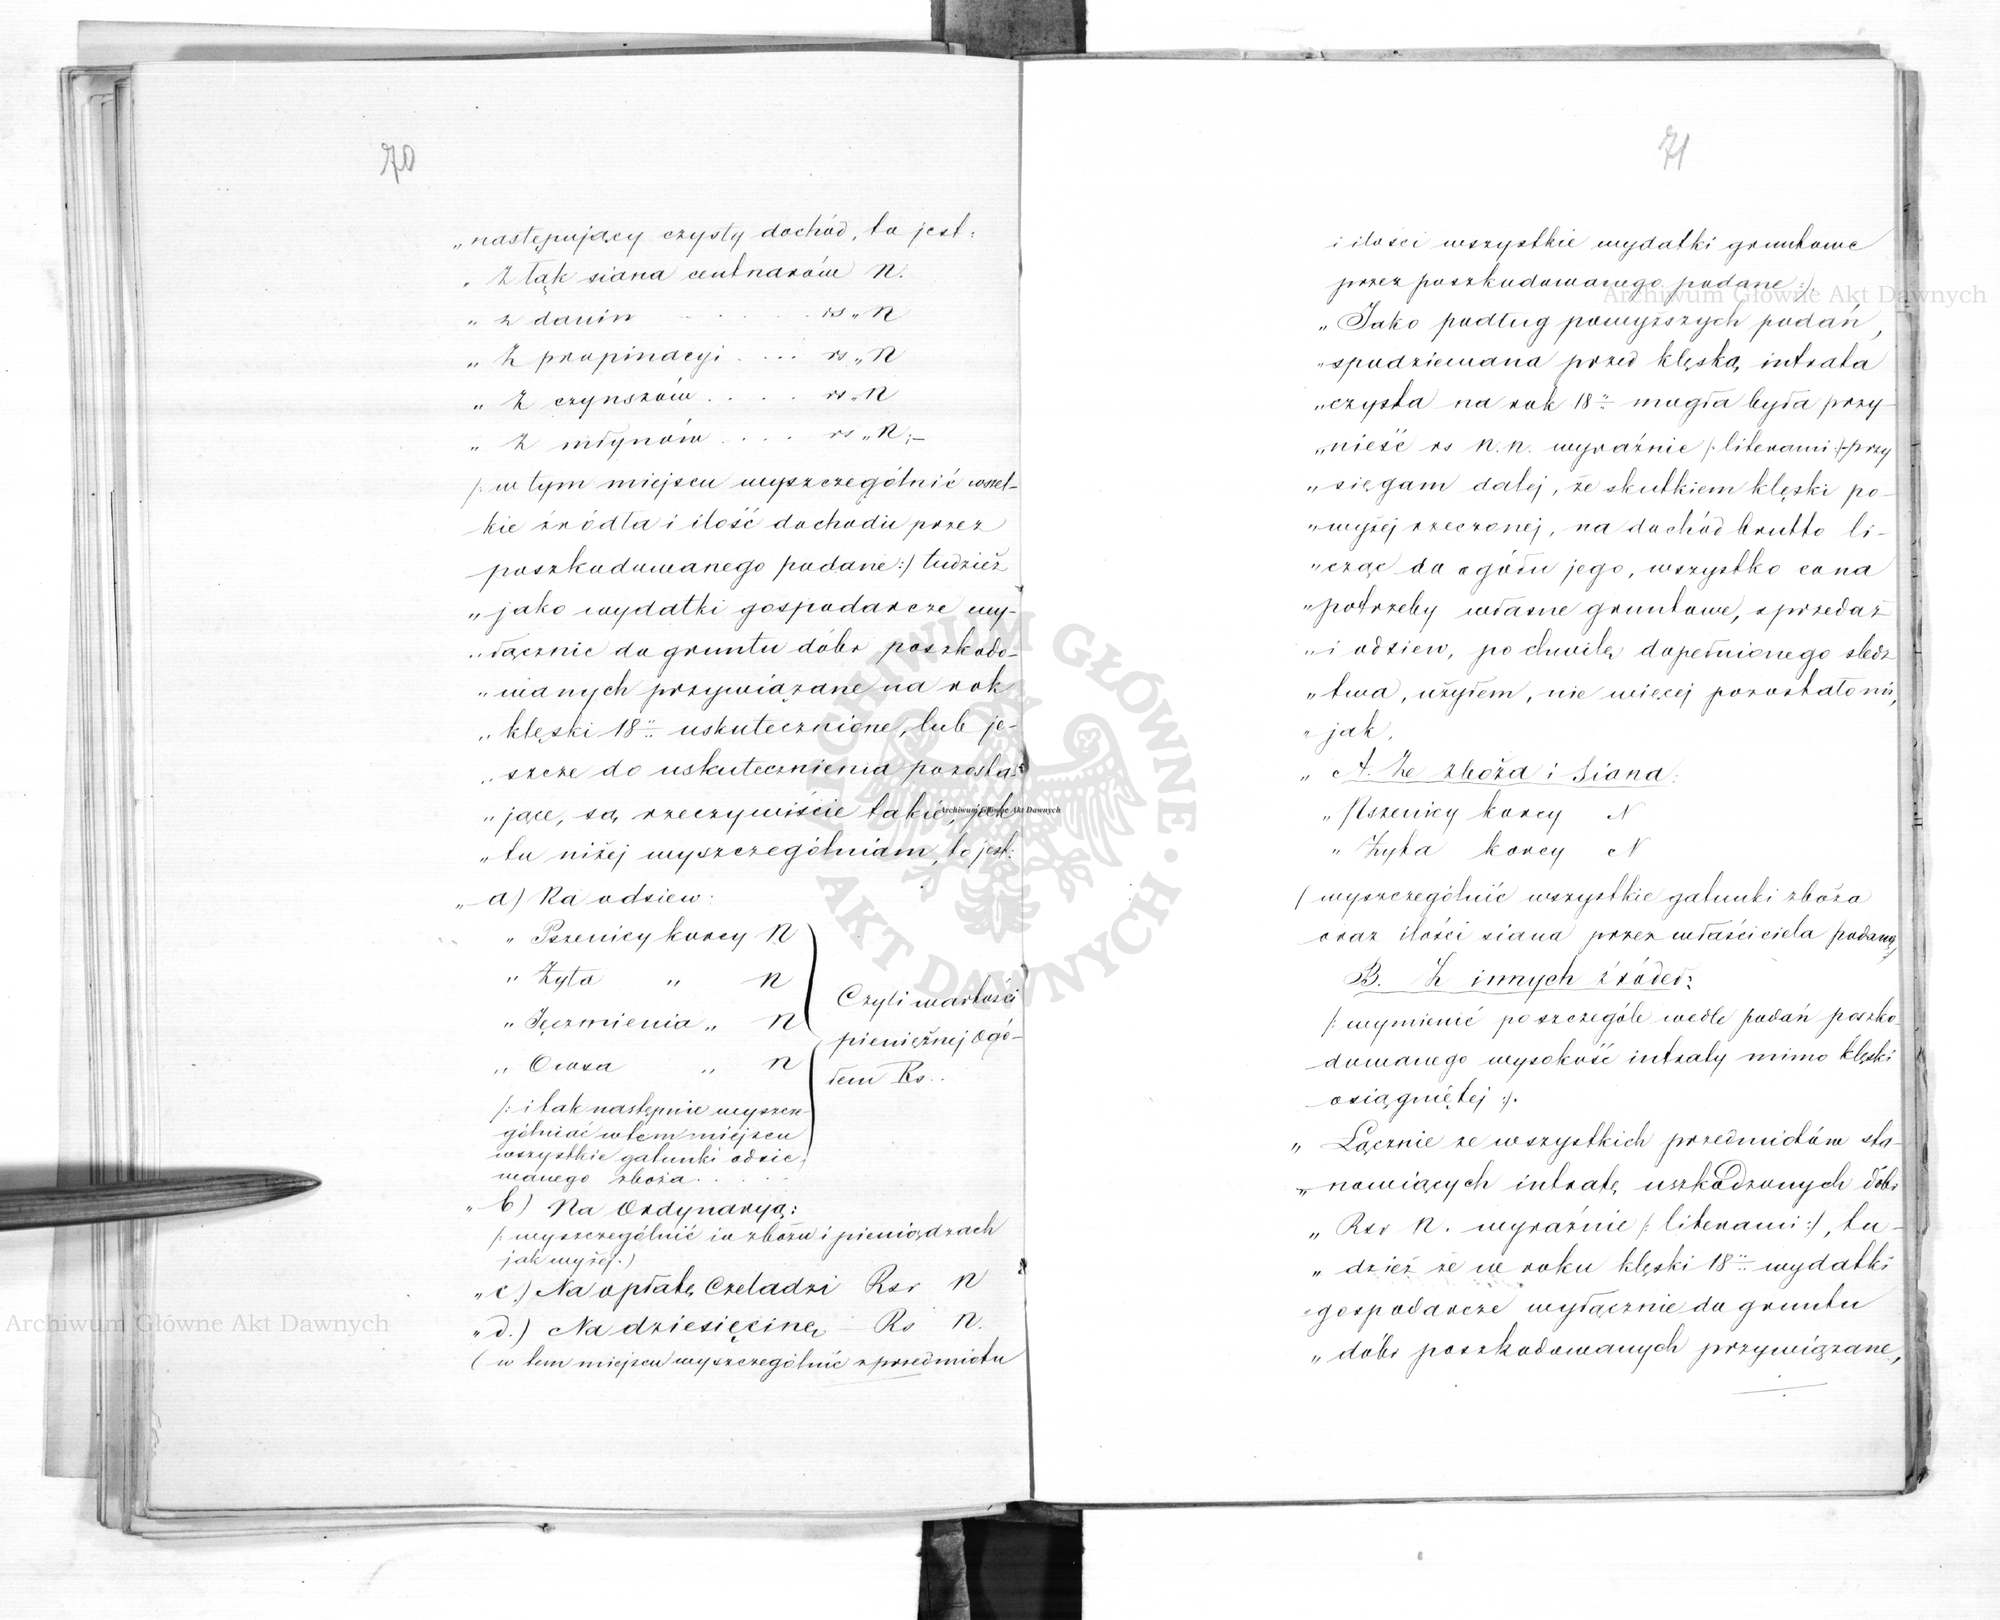 70
„następujący czysty dochód, to jest:
„ Z łąk siana centnarów N.
„ z danin . . . . . rs „ N
„ Z propinacyi . . . . rs „ N
„ Z czynszów . . . . rs „ N
„ Z młynów . . . . rs „ N;–
/: w tym miejscu wyszczególnić wszel-
kie źródła i ilość dochodu przez
poszkodowanego podane :/ tudzież
„ jako wydatki gospodarcze wy-
„ łącznie do gruntu dóbr poszkodo-
„ wanych przywiązane na rok
„ klęski 18.. uskutecznione, lub je-
„ szcze do uskutecznienia pozosta-
„ jące, są rzeczywiście takie, jak
„ tu niżej wyszczególniam, to jest:
„ a) Na odsiew:
„ Pszenicy korcy N
„ Żyta „ N
„ Jęczmienia „ N
„ Owsa „ N
Czyli wartości
pieniężnej ogó-
łem Rs..
/: i tak następnie wyszcze-
gólniać w tem miejscu
wszystkie gatunki odsie-
wanego zboża . . . . .
„ b) Na Ordynaryą:
/: wyszczególnić in zbożu i pieniądzach
jak wyżej.)
„ c.) Na opłatę Czeladzi Rsr N
„ d.) Na dziesięcinę – Rs N.
( w tem miejscu wyszczególnić z przedmiotu
71
i ilości wszystkie wydatki gruntowe
przez poszkodowanego podane :/.
„ Jako podług powyższych podań,
„ spodziewana przed klęską intrata
„ czysta na rok 18.. mogła była przy-
„ nieść rs N.N. wyraźnie /: literami :/ – przy
„ sięgam dalej, że skutkiem klęski po-
„ wyżej rzeczonej, na dochód brutto li-
„ cząc do ogółu jego, wszystko co na
„ potrzeby własne gruntowe, sprzedaż
„ i odsiew, po chwilę dopełnionego śledz
„ twa, użyłem, nie więcej pozostało mi,
„ jak,
„ A. Ze zboża i Siana:
„ Pszenicy korcy N
„ Żyta korcy N
/ wyszczególnić wszystkie gatunki zboża
oraz ilości siana przez właściciela podaną
B. Z innych źródeł:
/: wymienić po szczególe wedle podań poszko-
dowanego wysokość intraty mimo klęski
osiągniętej :/.
„ Łącznie ze wszystkich przedmiotów sta-
„ nowiących intratę uszkodzonych dóbr
„ Rsr N. wyraźnie /: literami :/, tu-
„ dzież że w roku klęski 18.. wydatki
„ gospodarcze wyłącznie do gruntu
„ dóbr poszkodowanych przywiązane,
Archiwum Główne Akt Dawnych
Archiwum Główne Akt Dawnych
Archiwum Główne Akt Dawnych
ARCHIWUM GŁÓWNE • AKT DAWNYCH •